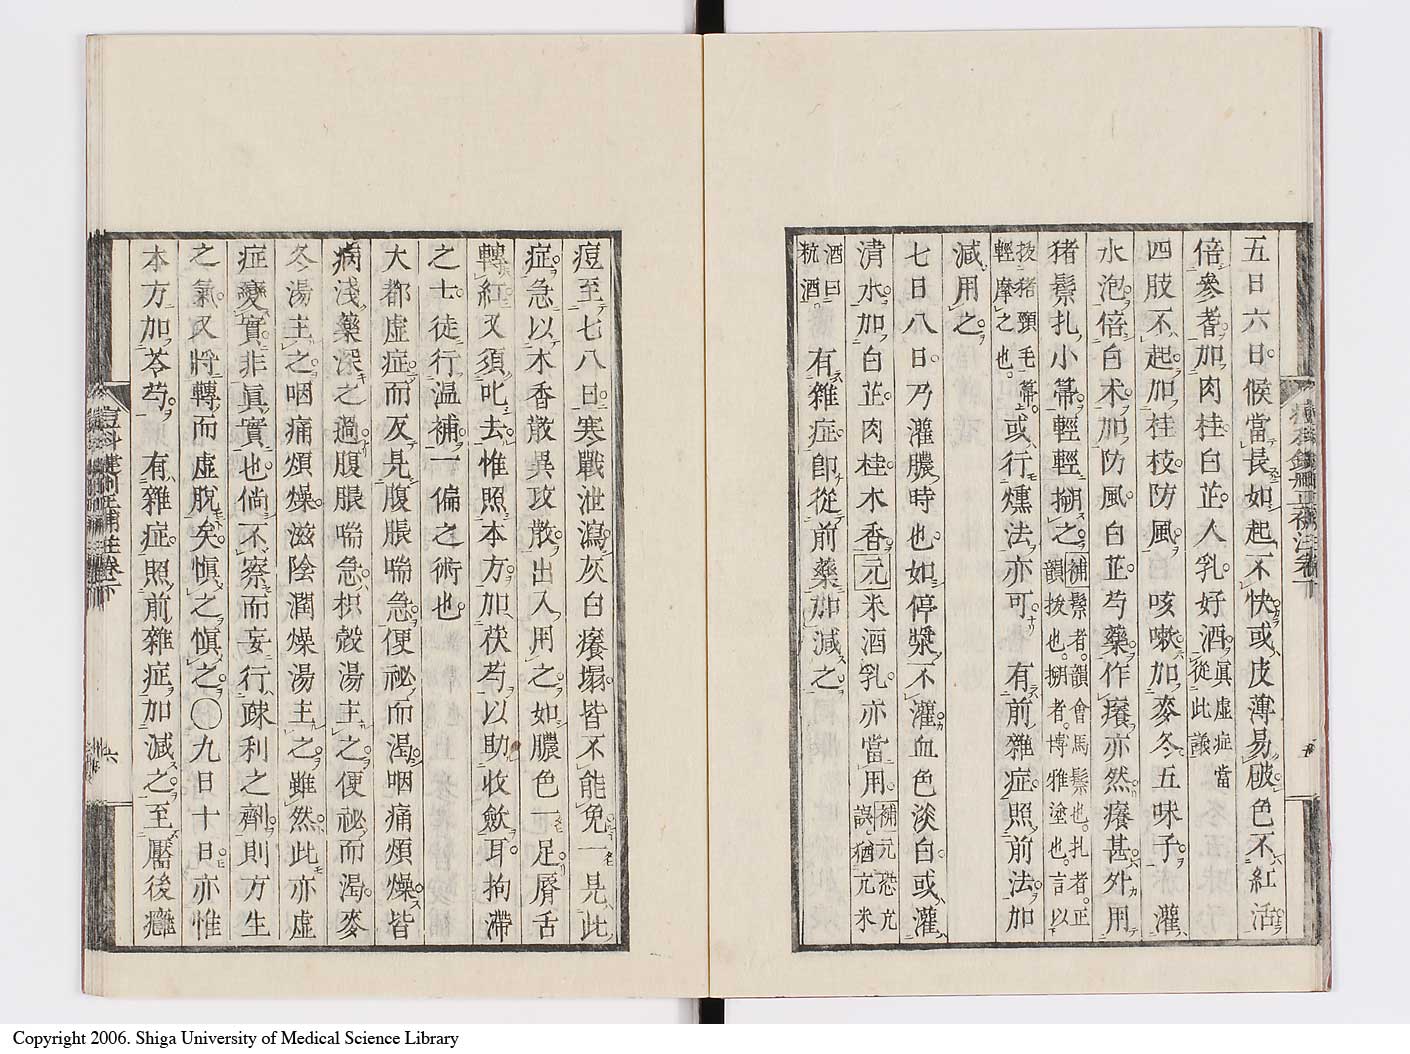 五日六日候當長如起不快或皮薄易破色不紅活
倍參耆加肉桂白芷人乳好酒從此議眞虛症當
四肢不起加桂枝防風咳嗽加麥冬五味子灌
水泡倍白朮加防風白芷芍藥作癢亦然癢甚外用
猪鬃扎小箒輕輕搠之補鬃者韻會馬鬃也扎者正
韻拔也搠者博雅塗也言以
扱猪頸毛箒
輕摩之也或行燻法亦可有前雜症照前法加
減用之
七日八日乃灌膿時也如停漿不灌血色淡白或灌
清水加白芷肉桂木香元米酒乳亦當用補元恐亢
誤猶亢米
酒曰
秔酒有雜症卽從前藥加減之
痘至七八日寒戰泄瀉灰白癢塌皆不能免一見此
症急以木香散異攻散出入用之如膿色一足脣舌
轉紅又須叱去惟照本方加茯芍以助收斂耳拘滯
之士徒行溫補一偏之術也
大都虛症而反見腹脹喘急便祕而渴咽痛煩燥皆
病淺藥深之過腹脹喘急枳殼湯主之便祕而渴麥
冬湯主之咽痛煩燥滋陰潤燥湯主之雖然此亦虛
症變實非眞實也倘不察而妄行疎利之劑則方生
之氣又將轉而虛脫矣愼之愼之○九日十日亦惟
本方加苓芍有雜症照前雜症加減之至靨後癰
六
Copyright 2006. Shiga University of Medical Science Library